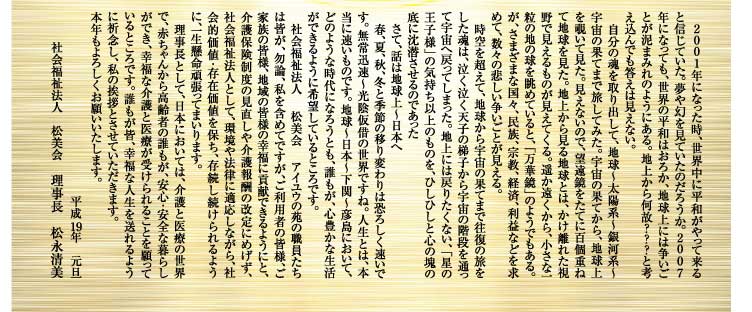 ２００１年になった時、世界中に平和がやって来る
と信じていた。夢や幻を見ていたのだろうか。２００７
年になっても、世界の平和はおろか、地球上には争いご
とが泥まみれのようにある。地上から何故？？？と考
え込んでも答えは見えない。
自分の魂を取り出して、地球～太陽系～銀河系～
宇宙の果てまで旅してみた。宇宙の果てから、地球上
を覗いて見た。見えないので、望遠鏡をたてに百個重ね
て地球を見た。地上から見る地球とは、かけ離れた視
野で見えるものが見えてくる。遥か遠くから、小さな一
粒の地の球を眺めていると、「万華鏡」のようでもある。
が、さまざまな国々、民族、宗教、経済、利益などを求
めて、数々の悲しい争いごとが見える。
時空を超えて、地球から宇宙の果てまで往復の旅を
した魂は、泣く泣く天子の梯子から宇宙の階段を通っ
て宇宙へ戻ってしまった。地上には戻りたくない、「星の
王子様」の気持ち以上のものを、ひしひしと心の塊の
底に沈潜させるのであった
さて、話は地球上～日本へ
春、夏、秋、冬と季節の移り変わりは恐ろしく速いで
す。無常迅速～光陰仮借の世界ですね。人生とは、本
当に速いものです。地球～日本～下関～彦島において、
どのような時代になろうとも、誰もが、心豊かな生活
ができるように希望しているところです。
社会福祉法人　松美会　アイユウの苑の職員たち
は皆が、勿論、私を含めてですが、ご利用者の皆様、ご
家族の皆様、地域の皆様の幸福に貢献できるようにと、
介護保険制度の見直しや介護報酬の改定にめげず、
社会福祉法人として、環境や法律に適応しながら、社
会的価値・存在価値を保ち、存続し続けられるよう
に、一生懸命頑張ってまいります。
理事長として、日本においては、介護と医療の世界
で、赤ちゃんから高齢者の誰もが、安心・安全な暮らし
ができ、幸福な介護と医療が受けられることを願って
いるところです。誰もが皆、幸福な人生を送れるよう
に祈念し、私の挨拶とさせていただきます。
本年もよろしくお願いいたします。
平成19年　元旦
社会福祉法人　松美会　理事長　松永清美